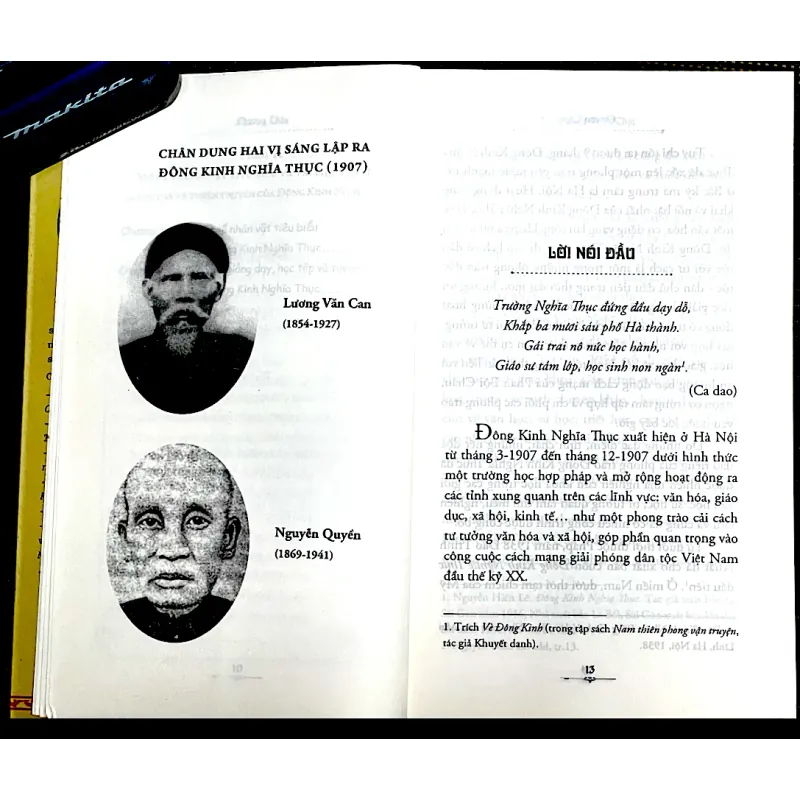 makita
CHÂN DUNG HAI VỊ SÁNG LẬP RA
ĐÔNG KINH NGHĨA THỤC (1907)
Lương Văn Can
(1854-1927)
Nguyễn Quyển
(1869-1941)
LỜI NÓI ĐẦU
Trường Nghĩa Thục đứng đầu dạy dỗ,
Khắp ba mươi sáu phố Hà thành.
Gái trai nô nức học hành,
Giáo sư tám lớp, học sinh non ngàn¹.
(Ca dao)
Đông Kinh Nghĩa Thục xuất hiện ở Hà Nội
từ tháng 3-1907 đến tháng 12-1907 dưới hình thức
một trường học hợp pháp và mở rộng hoạt động ra
các tỉnh xung quanh trên các lĩnh vực: văn hóa, giáo
dục, xã hội, kinh tế… như một phong trào cải cách
tư tưởng văn hóa và xã hội, góp phần quan trọng vào
công cuộc cách mạng giải phóng dân tộc Việt Nam
đầu thế kỷ XX.
1. Trích Vè Đông Kinh (trong tập sách Nam thiên phong vận truyện,
tác giả Khuyết danh).
13